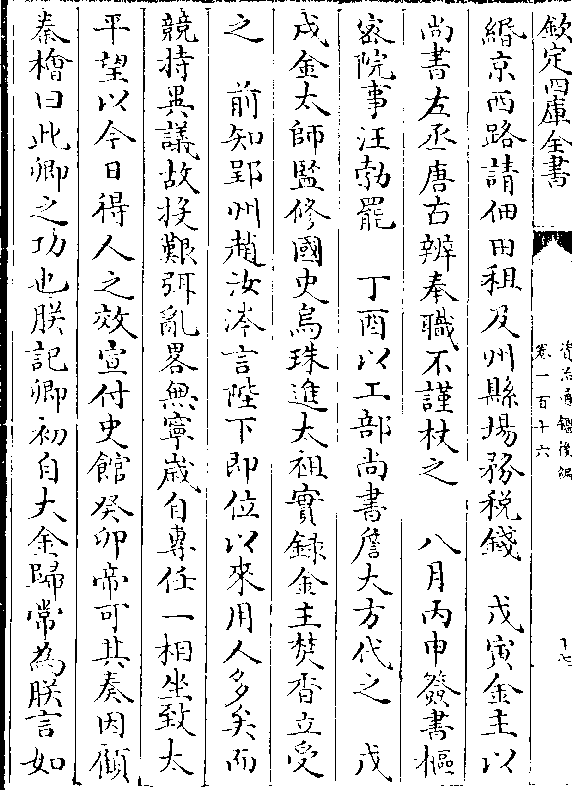 欽定四庫全書
資治通鑑後編
卷一百十六
十七
緡京西路請佃田租及州縣場務税錢　戊寅金主以
尚書左丞唐古辨奉職不謹杖之　八月丙申簽書樞
密院事汪勃罷　丁酉以工部尚書詹大方代之　戊
戌金太師監修國史烏珠進太祖實録金主焚香立受
之　前知郢州趙汝涔言陛下即位以來用人多矣而
競持異議故投艱弭亂畧無寧嵗自專任一相坐致太
平望以今日得人之效宣付史館癸卯帝可其奏因顧
秦檜曰此卿之功也朕記卿初自大金歸常為朕言如